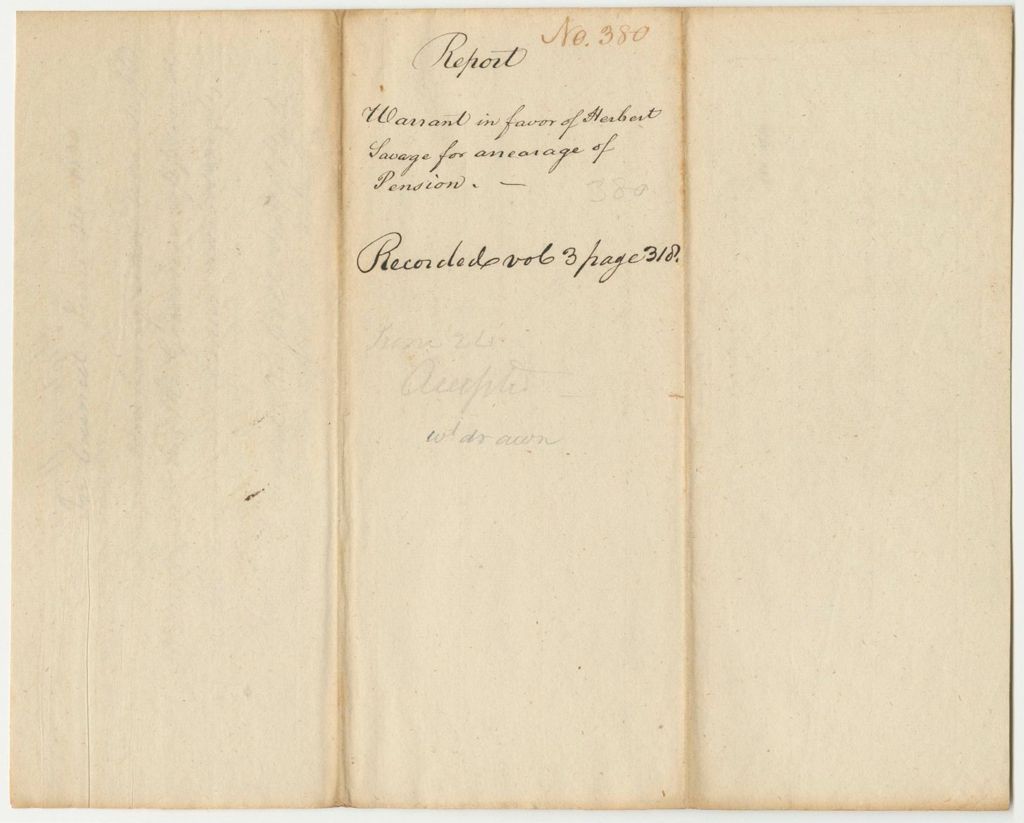 No. 380
Report
Warrant in favor of Herbert
Savage for arrearage of
Pension. —
380
Recorded vol 3 page 318.
June
Accepted
wd drawn